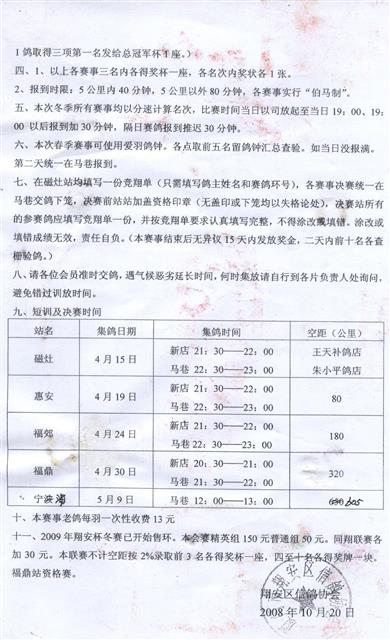 1 鸽取得三项第一名发给总冠军杯 1 座。）
四、1、以上各赛事三名内各得奖杯一座，各名次内奖状各 1 张。
2、报到时限：5 公里内 40 分钟，5 公里以外 80 分钟，各赛事实行“伯马制”。
五、本次冬季所有赛事均以分速计算名次，比赛时间当日以司放起至当日 19：00、19：
00 以后报到加 30 分钟，隔日赛鸽报到推迟 30 分钟。
六、本次春季赛事可使用爱羽鸽钟。各点取前五名留鸽钟汇总查验。如当日没报满。
第二天统一在马巷报到。
七、在磁灶站均填写一份竞翔单（只需填写鸽主姓名和赛鸽环号），各赛事决赛统一在
马巷交鸽下笼，决赛前站站加盖资格印章（无盖印或下笼均以失格论处），决赛站所有
的参赛鸽应填写竞翔单一份，并按竞翔单要求认真填写完整，不得涂改或填错。涂改或
填错成绩无效，责任自负。（本赛事结束后无异议 15 天内发放奖金，二天内前十名各查
棚验鸽。）
八、请各位会员准时交鸽，遇气候恶劣延长时间，何时集放请自行到各片负责人处询问，
避免错过训放时间。
九、短训及决赛时间
站名 集鸽日期 集鸽时间 空距（公里）
磁灶 4 月 15 日 新店 21：30——22：00 王天补鸽店
马巷 22：30——23：00 朱小平鸽店
惠安 4 月 19 日 新店 21：30——22：00 80
马巷 22：30——23：00
福郊 4 月 24 日 新店 21：30——22：00 180
马巷 22：30——23：00
福鼎 4 月 30 日 新店 20：30——21：00 320
马巷 21：30——22：00
宁波 5 月 9 日 马巷 12：00——13：00
十、本赛事老鸽每羽一次性收费 13 元
十一、2009 年翔安杯冬赛已开始售环。本会赛精英组 150 元普通组 50 元。同翔联赛各
加 30 元。本联赛不计空距按 2%录取前 3 名各得奖杯一座，四至十名各得奖牌一块。
福鼎站资格赛。
翔安区信鸽协会
2008 年 10 月 20 日